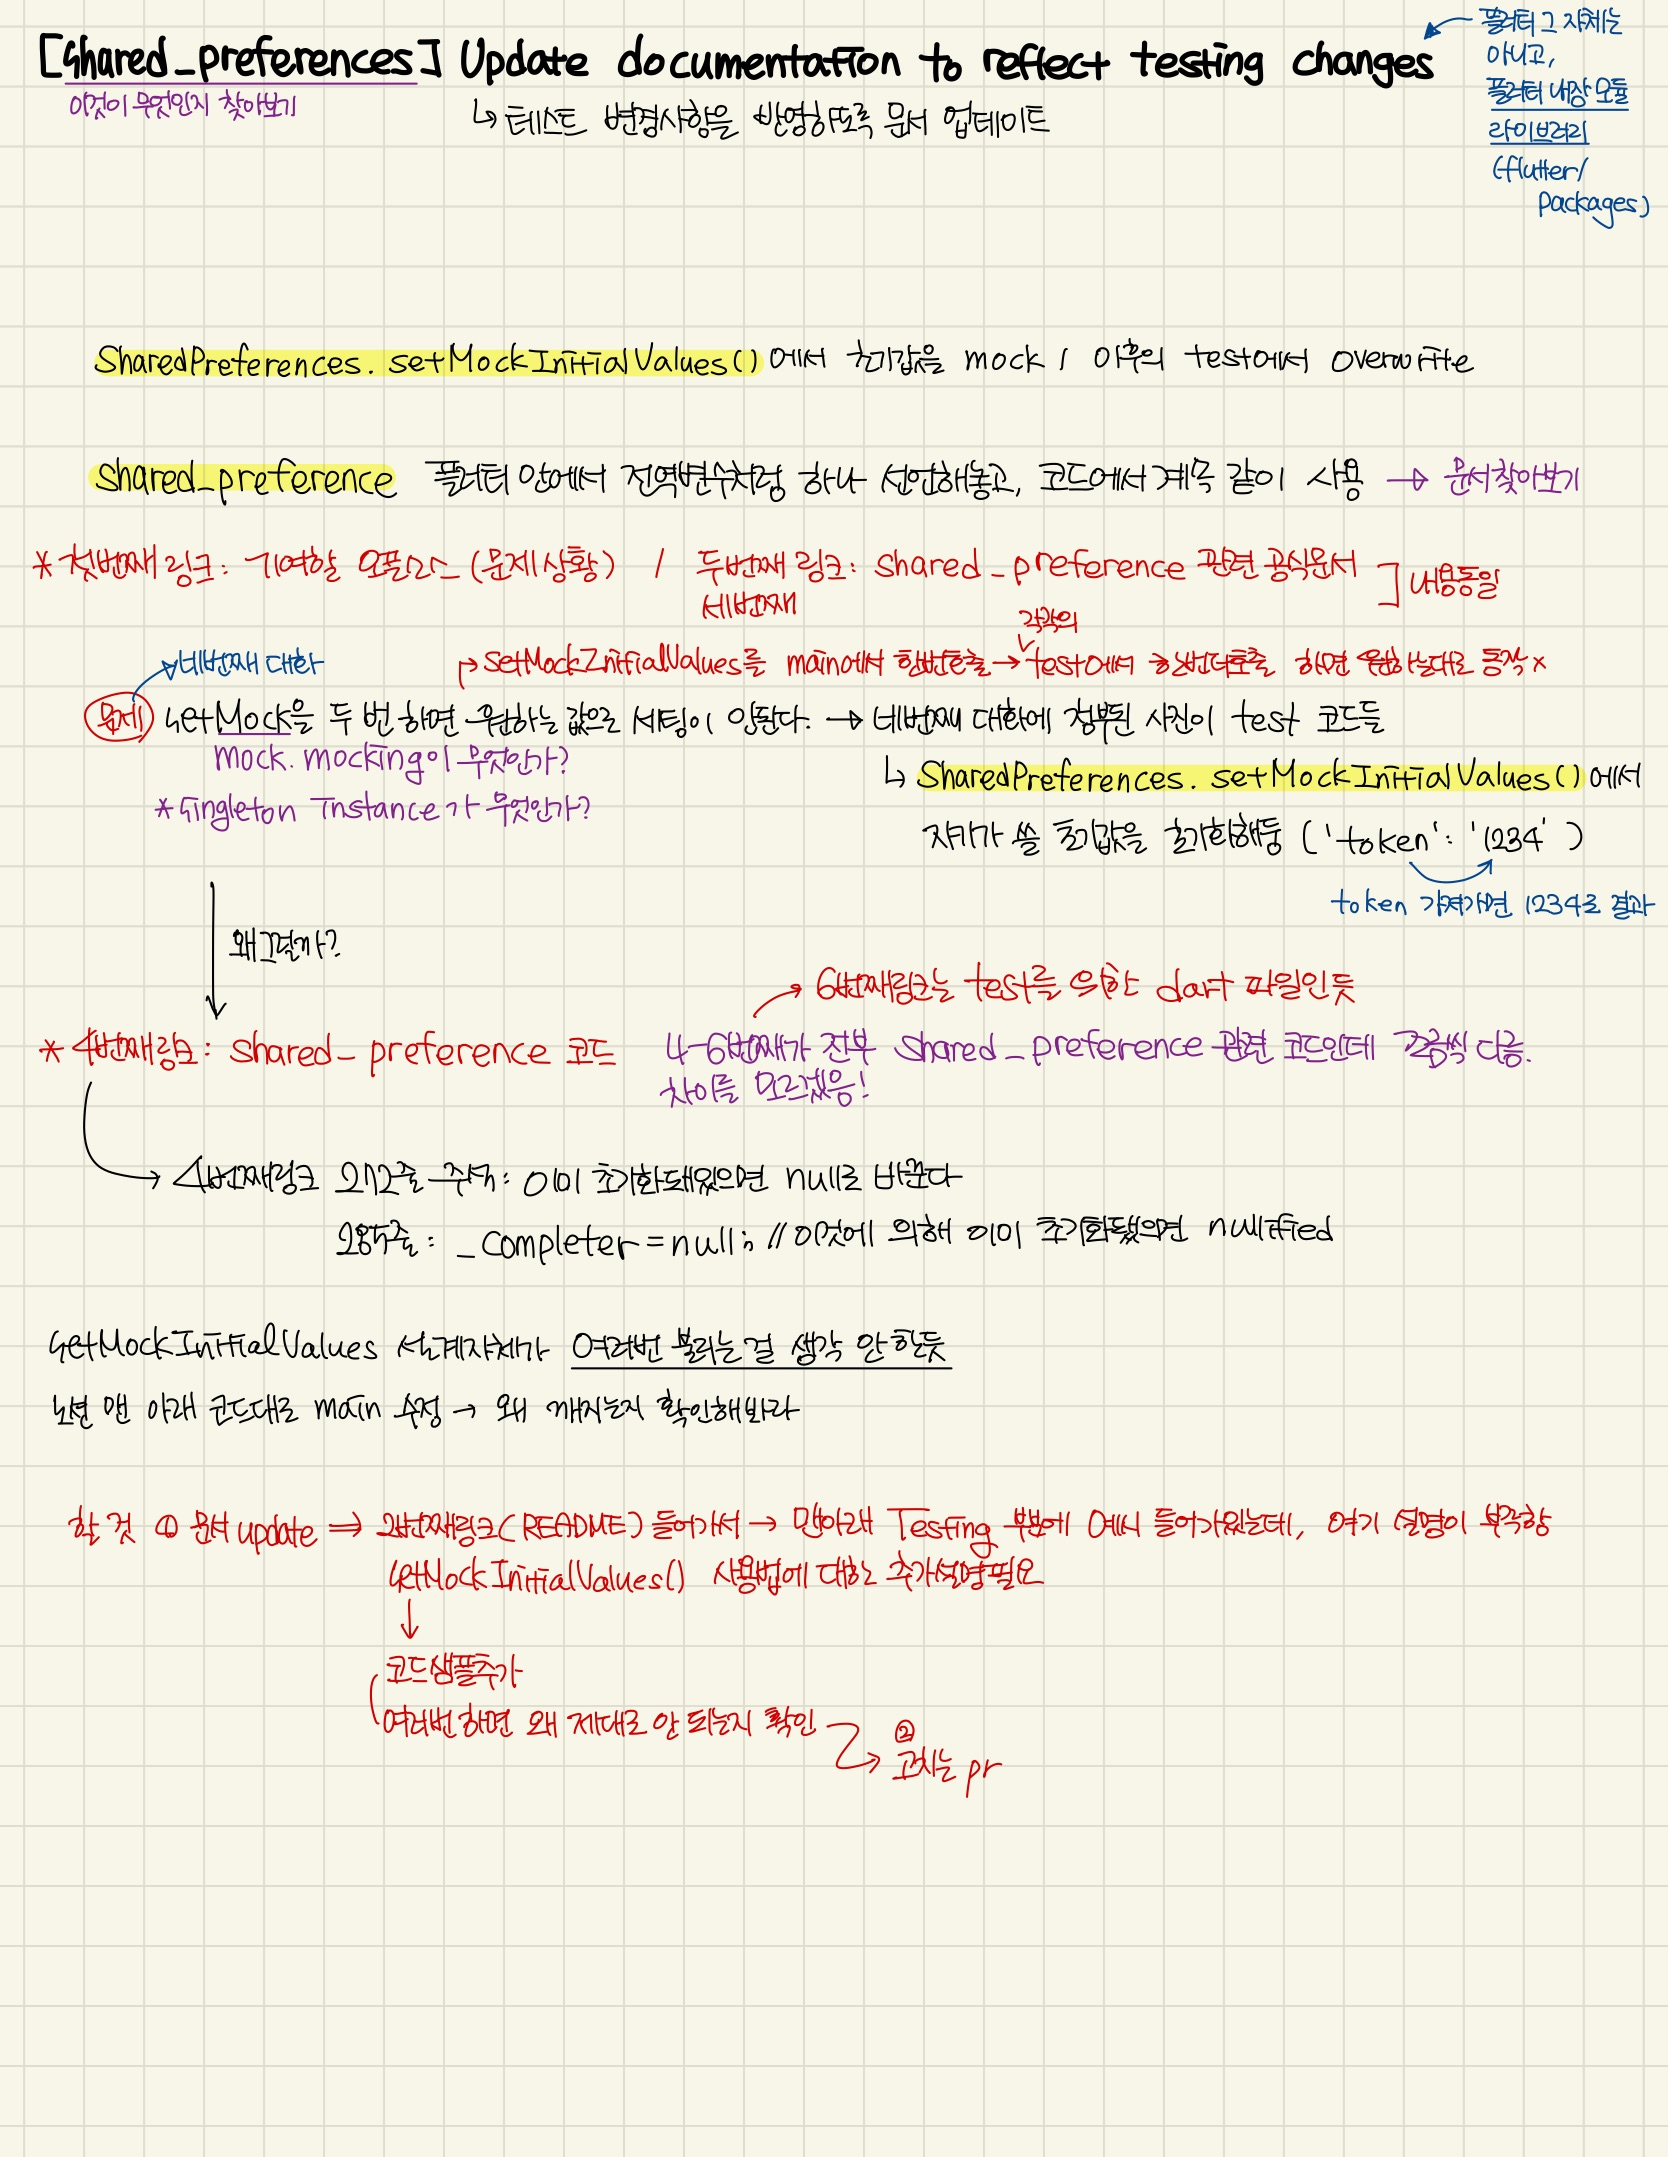 [Shared_preferences] Update documentation to reflect testing changes
플러터 그 자체는
아니고,
플러터 내장 모듈
라이브러리
(flutter/
packages)
이것이 무엇인지 찾아보기
↳ 테스트 변경사항을 반영하도록 문서 업데이트
SharedPreferences.setMockInitialValues()에서 초기값을 mock / 이후의 test에서 overwrite
shared_preference 플러터 안에서 전역변수처럼 하나 선언해놓고, 코드에서 계속 같이 사용 → 문서찾아보기
* 첫번째 링크: 기여할 오픈소스 (문제상황) / 두번째 링크: shared_preference 관련 공식문서 ] 내용동일
세번째
각각의
네번째 대화
↱ setMockInitialValues를 main에서 한번호출 → test에서 한번더호출 하면 원하는대로 동작 x
문제 setMock을 두 번 하면 원하는 값으로 세팅이 안된다. → 네번째 대화에 첨부된 사진이 test 코드들
mock. mocking이 무엇인가?
↳ SharedPreferences.setMockInitialValues()에서
* Singleton Instance가 무엇인가?
자기가 쓸 초기값을 초기화해둠 ('token': '1234')
token 가져가면 1234로 결과
왜그럴까?
→ 6번째링크는 test를 위한 dart 파일인듯
* 4번째링크: shared_preference 코드
4-6번째가 전부 shared_preference 관련 코드인데 조금씩 다름.
차이를 모르겠음!
→ 4번째링크 272줄 주석: 이미 초기화돼있으면 null로 바꾼다
285줄: _completer = null; // 이것에 의해 이미 초기화됐으면 nullified
setMockInitialValues 설계자체가 여러번 불리는걸 생각 안한듯
노션 맨 아래 코드대로 main 수정 → 왜 깨지는지 확인해봐라
할 것 ① 문서 update ⇒ 2번째링크(README) 들어가서 → 맨아래 Testing 부분에 예시 들어가있는데, 여기 설명이 부족함
setMockInitialValues() 사용법에 대한 추가설명필요
↓
코드샘플추가
여러번하면 왜 제대로 안 되는지 확인
②
→ 고치는 pr